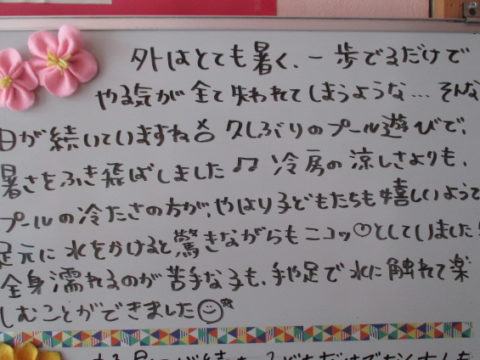 外はとても暑く、一歩でるだけで
やる気が全て失われてしまうような…そんな
日が続いていますね 久しぶりのプール遊びで、
暑さをふき飛ばしました♫ 冷房の涼しさよりも、
プールの冷たさの方が、やはり子どもたちも嬉しいようで
足元に水をかけると驚きながらもニコッ♡としていました!
全身濡れるのが苦手な子も、手や足で水に触れて楽
しむことができました☺